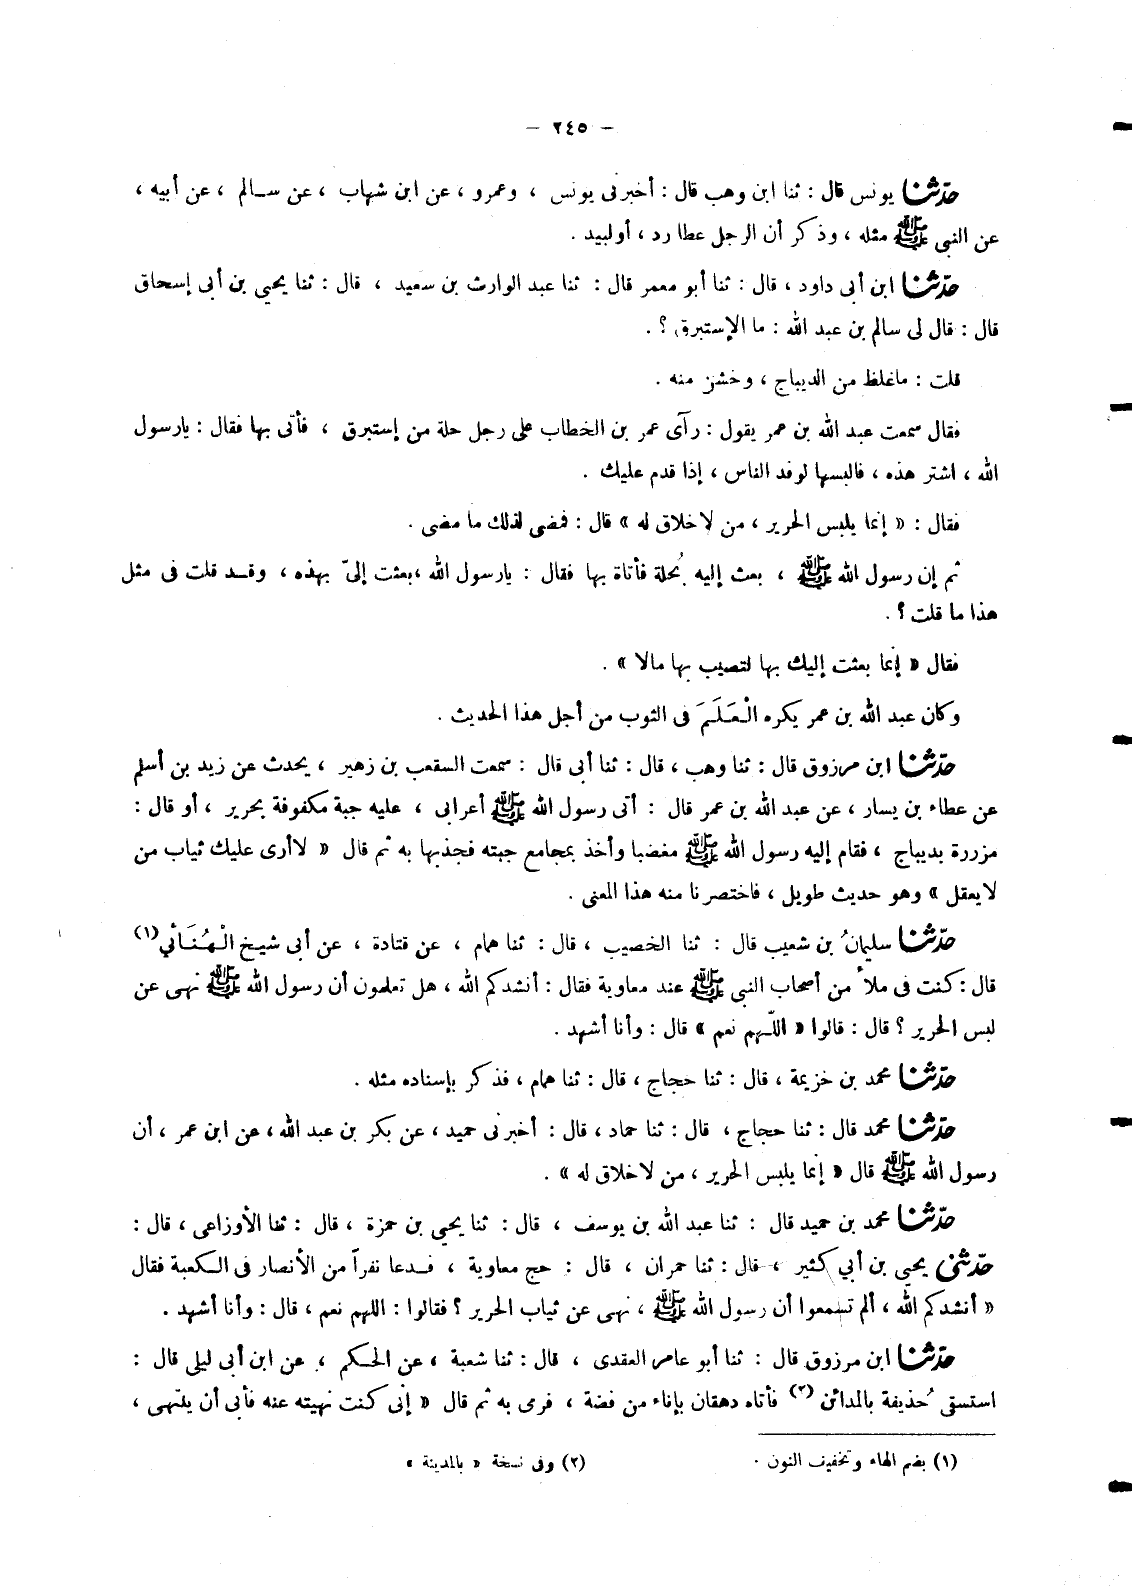 – ٢٤٥ –
حدّثنا يونس قال : ثنا ابن وهب قال : أخبرنى يونس ، وعمرو ، عن ابن شهاب ، عن سالم ، عن أبيه ،
عن النبى ﷺ مثله ، وذكر أن الرجل عطارد ، أولبيد .
حدّثنا ابن أبى داود ، قال : ثنا أبو معمر قال : ثنا عبد الوارث بن سعيد ، قال : ثنا يحيي بن أبى إسحاق
قال : قال لى سالم بن عبد الله : ما الإستبرق ؟ .
قلت : ماغلظ من الديباج ، وخشن منه .
فقال سمعت عبد الله بن عمر يقول : رآى عمر بن الخطاب على رجل حلة من إستبرق ، فأتى بها فقال : يارسول
الله ، اشتر هذه ، فالبسها لوفد الناس ، إذا قدم عليك .
فقال : « إنما يلبس الحرير ، من لاخلاق له » قال : فمضى لذلك ما مضى .
ثم إن رسول الله ﷺ ، بعث إليه بُحلة فأتاة بها فقال : يارسول الله ،بعثت إلىّ بهذه ، وقد قلت فى مثل
هذا ما قلت ؟ .
فقال « إنما بعثت إليك بها لتصيب بها مالا » .
وكان عبد الله بن عمر يكره الْعَلَمَ فى الثوب من أجل هذا الحديث .
حدّثنا ابن مرزوق قال : ثنا وهب ، قال : ثنا أبى قال : سمعت السقعب بن زهير ، يحدث عن زيد بن أسلم
عن عطاء بن يسار ، عن عبد الله بن عمر قال : أتى رسول الله ﷺ أعرابى ، عليه جبة مكفوفة بحرير ، أو قال :
مزررة بديباج ، فقام إليه رسول الله ﷺ مغضبا وأخذ بمجامع جبته فجذبها به ثم قال « لاأرى عليك ثياب من
لايعقل » وهو حديث طويل ، فاختصرنا منه هذا المعنى .
حدّثنا سليمانُ بن شعيب قال : ثنا الخصيب ، قال : ثنا همام ، عن قتادة ، عن أبى شيخ الْهُنَائي(١)
قال : كنت فى ملأ من أصحاب النبى ﷺ عند معاوية فقال : أنشدكم الله ، هل تعلمون أن رسول الله ﷺ نهى عن
لبس الحرير ؟ قال : قالوا « اللّهم نعم » قال : وأنا أشهد .
حدّثنا محمد بن خزيمة ، قال : ثنا حجاج ، قال : ثنا همام ، فذكر بإسناده مثله .
حدّثنا محمد قال : ثنا حجاج ، قال : ثنا حماد ، قال : أخبرنى حميد ، عن بكر بن عبد الله ، عن ابن عمر ، أن
رسول الله ﷺ قال « إنما يلبس الحرير ، من لاخلاق له » .
حدّثنا محمد بن حميد قال : ثنا عبد الله بن يوسف ، قال : ثنا يحيي بن حمزة ، قال : ثنا الأوزاعى ، قال :
حدّثنى يحيي بن أبي كثير ، قال : ثنا حمران ، قال : حج معاوية ، فدعا نفراً من الأنصار فى الكعبة فقال
« أنشدكم الله ، ألم تسمعوا أن رسول الله ﷺ ، نهى عن ثياب الحرير ؟ فقالوا : اللهم نعم ، قال : وأنا أشهد .
حدّثنا ابن مرزوق قال : ثنا أبو عامر العقدى ، قال : ثنا شعبة ، عن الحكم ، عن ابن أبى ليلى قال :
استسقى حُذيفة بالمدائن (٢) فأتاه دهقان بإناء من فضة ، فرمى به ثم قال « إنى كنت نهيته عنه فأبى أن ينتهى ،
(١) بضم الهاء وتخفيف النون .
(٢) وفى نسخة « بالمدينة »